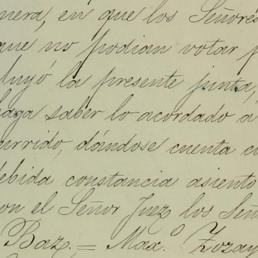 nera, en que los Señores
que no podian votar p
luyó la presente junta,
haga saber lo acordado a
currido, dándose cuenta co
ebida constancia asiento
on el Señor Juez los Seño
Baz.= Max.o Zozay